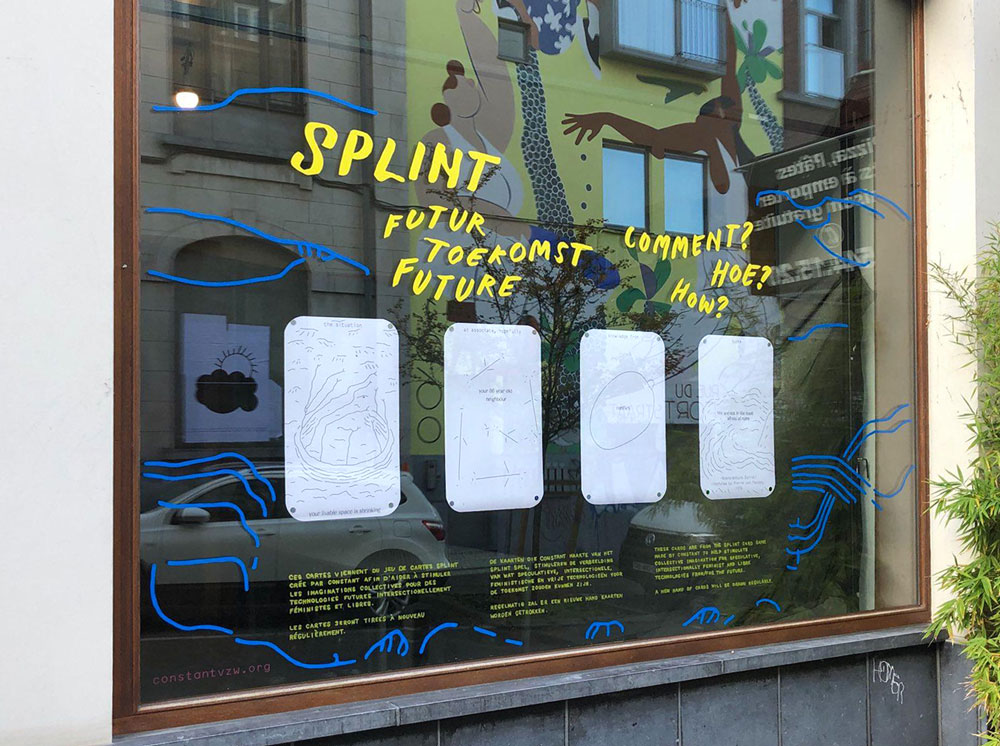 SPLINT
FUTUR
TOEKOMST
FUTURE
COMMENT?
HOE?
HOW?
the situation
your livable space is shrinking
your 88 year old
neighbour
CES CARTES VIENNENT DU JEU DE CARTES SPLINT
CRÉÉ PAR CONSTANT AFIN D'AIDER À STIMULER
LES IMAGINATIONS COLLECTIVES POUR DES
TECHNOLOGIES FUTURES INTERSECTIONELLEMENT
FÉMINISTES ET LIBRES.
LES CARTES SERONT TIRÉES À NOUVEAU
RÉGULIÈREMENT.
DE KAARTEN DIE CONSTANT MAAKTE VAN HET
SPLINT SPEL, STIMULEREN DE VERBEELDING
VAN WAT SPECULATIEVE, INTERSECTIONELE,
FEMINISTISCHE EN VRIJE TECHNOLOGIEËN VOOR
DE TOEKOMST ZOUDEN KUNNEN ZIJN.
REGELMATIG ZAL ER EEN NIEUWE HAND KAARTEN
WORDEN GETROKKEN.
THESE CARDS ARE FROM THE SPLINT CARD GAME
MADE BY CONSTANT TO HELP STIMULATE
COLLECTIVE IMAGINATION FOR SPECULATIVE,
INTERSECTIONALLY FEMINIST AND LIBRE
TECHNOLOGIES FROM/FOR THE FUTURE.
A NEW HAND OF CARDS WILL BE DRAWN REGULARLY.
constantvzw.org